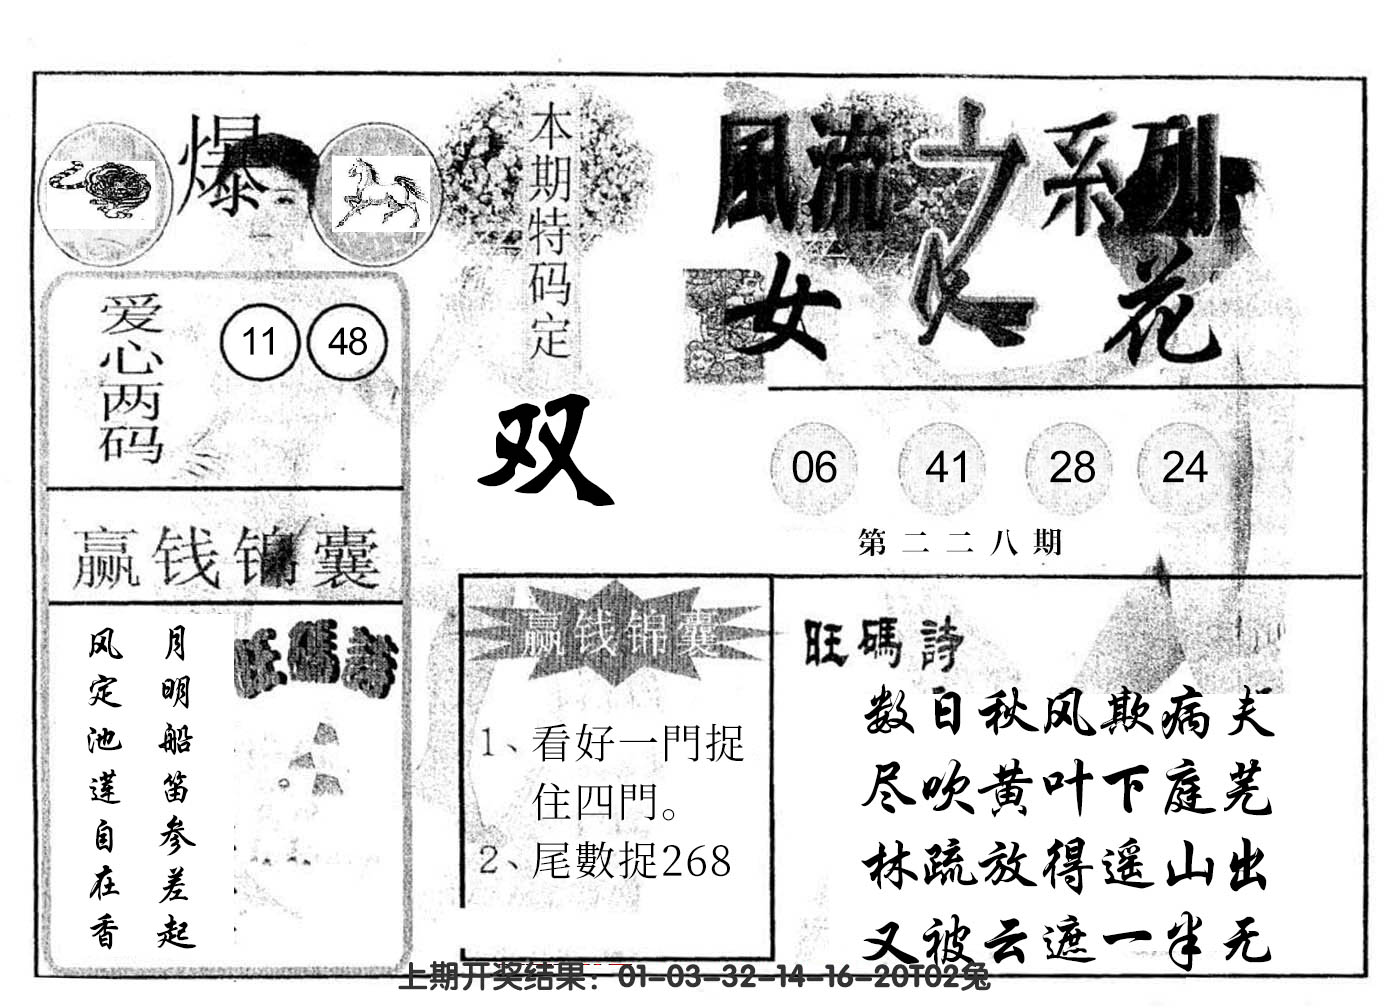 爆
本期特码定
双
風流之系列
女人花
爱心两码
11 48
06 41 28 24
第二二八期
赢钱锦囊
月明船笛参差起
风定池莲自在香
旺碼詩
赢钱锦囊
1、看好一門捉
住四門。
2、尾數捉268
旺碼詩
数日秋风欺病夫
尽吹黄叶下庭芜
林疏放得遥山出
又被云遮一半无
上期开奖结果：01-03-32-14-16-20T02兔